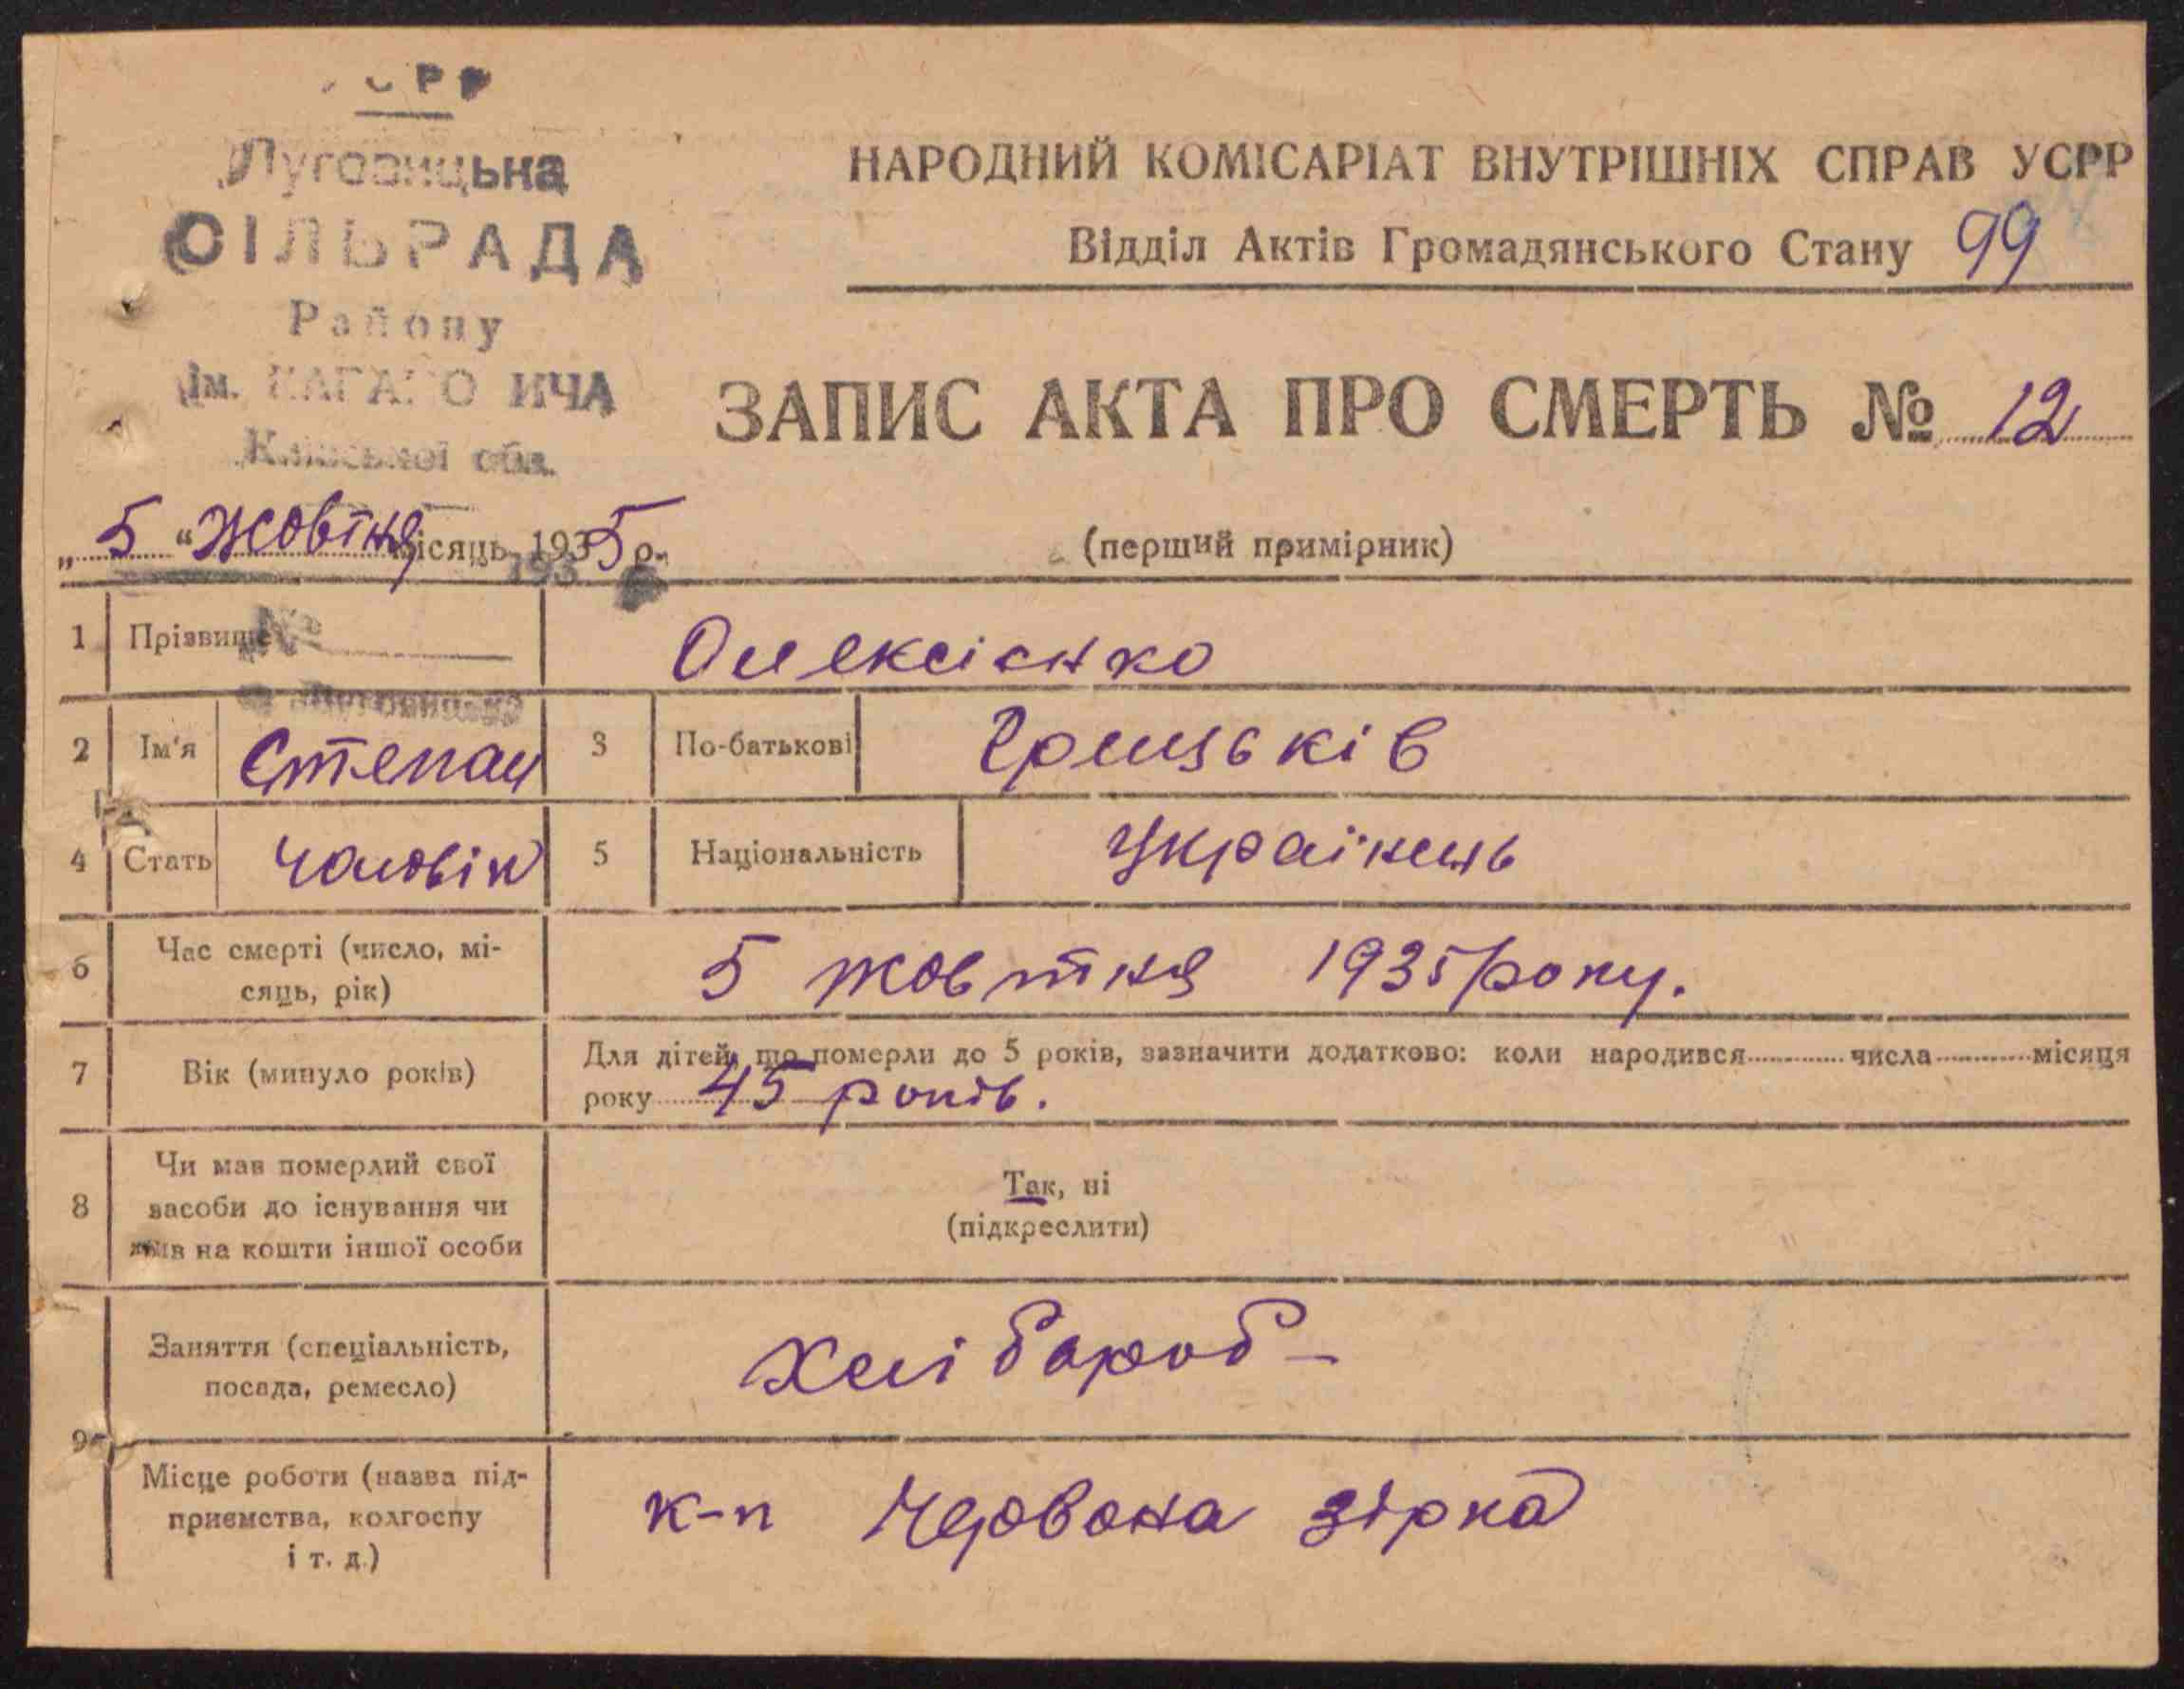 УСРР
Луговицька
СІЛЬРАДА
Району
ім. КАГАНОВИЧА
Київської обл.
НАРОДНИЙ КОМІСАРІАТ ВНУТРІШНІХ СПРАВ УСРР
Відділ Актів Громадянського Стану 99
ЗАПИС АКТА ПРО СМЕРТЬ № 12
„ 5 “ Жовтня місяць 1935 р.
(перший примірник)
193
№
1 Прізвище Олексієнко
2 Ім'я Степан 3 По-батькові Грицьків
4 Стать чоловік 5 Національність Українець
6 Час смерті (число, мі-
сяць, рік) 5 жовтня 1935 року.
7 Вік (минуло років) Для дітей, що померли до 5 років, зазначити додатково: коли народився числа місяця
року 45 років.
8 Чи мав померлий свої
засоби до існування чи
жив на кошти іншої особи
Так, ні
(підкреслити)
9 Заняття (спеціальність,
посада, ремесло) Хлібороб-
Місце роботи (назва під-
приємства, колгоспу
і т. д.) к-п Червона зірка